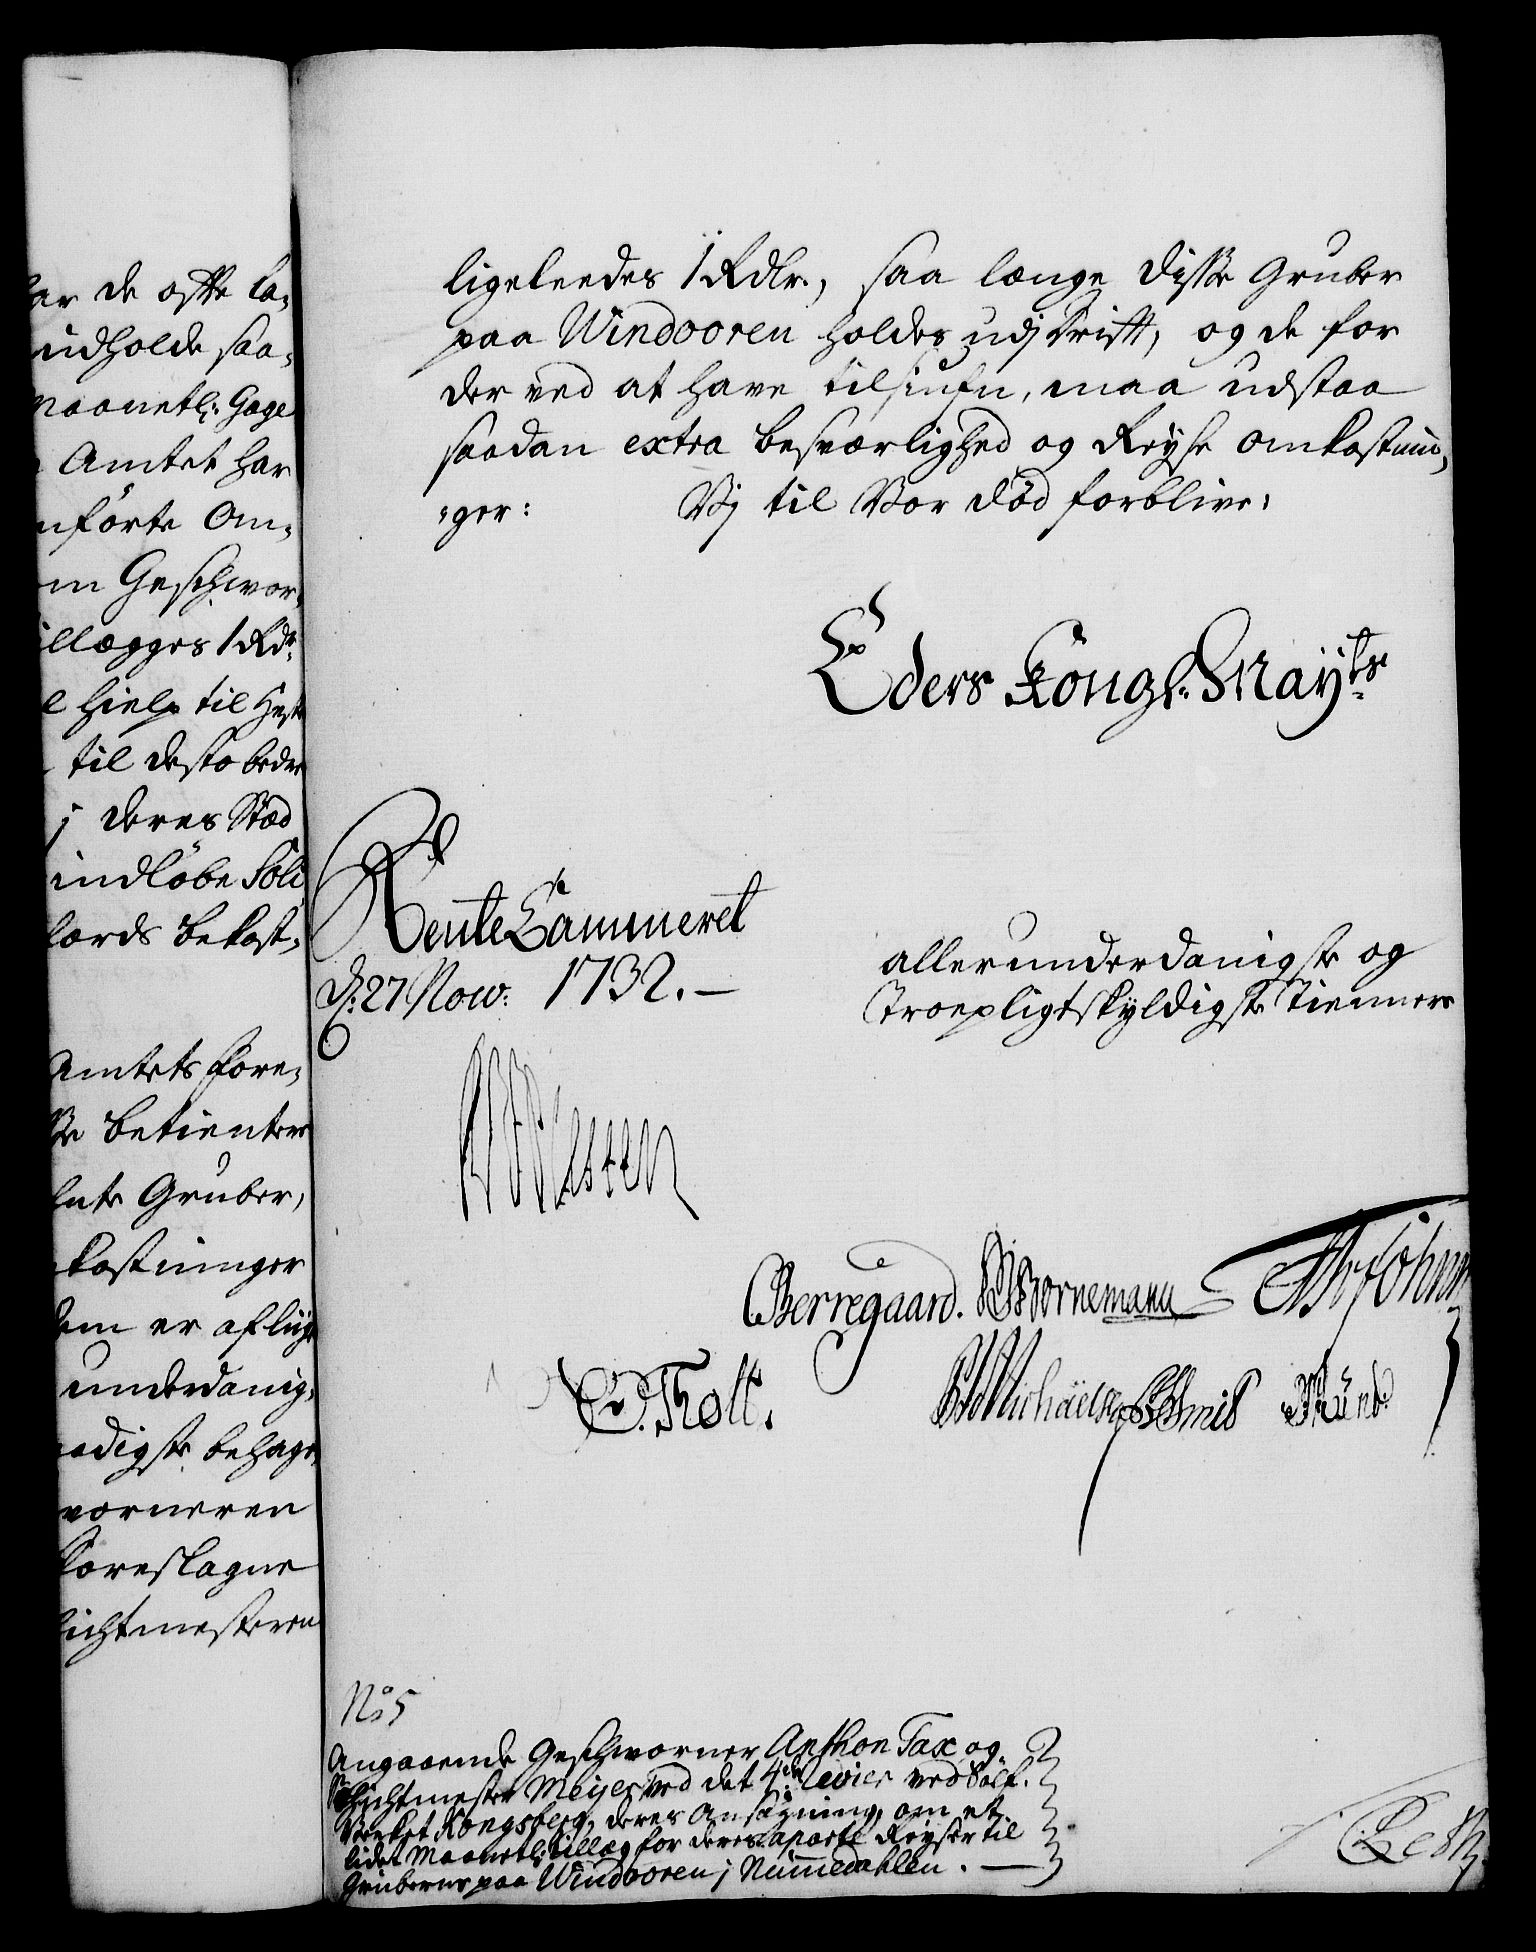 ar de ofte La=
udholde saa=
Maanetl: Gage
Amtet har
nförte Om=
m Geschwor=
illægges 1 Rdr
l hielp til Hest
til desto bedre
j deres Stæd
indløbe
lords bekost=
Amtets fore=
betienter
Gruber,
kostninger
em er
underdanig=
aadigste behage
vorneren
foreslagne
ichtmesteren
ligeleedes 1 Rdlr., saa længe disse Gruber
paa Windooren holdes udj Drift, og de for
der ved at have tilsiufn, maa udstaa
saadan extra besværlighed og Reyse omkostnin=
=ger: Vj til Vor död forblive:
Eders Kongl. Mayts
Rente Cammeret
d: 27 Now: 1732. —
allerunderdanigste og
Troepligtskyldigste Tiennere
Berregaard. Bornemann
O. Thott.
No 5
Angaaende Geschworner Anthon Tax og
Schichtmester Meijer ved det 4de Revier ved Sölf=
Verket Kongsberg, deres Ansögning, om et
lidet Maanetl: tillæg for deres aparte Reyser til
Gruberne paa Windooren j Nummedahlen. —